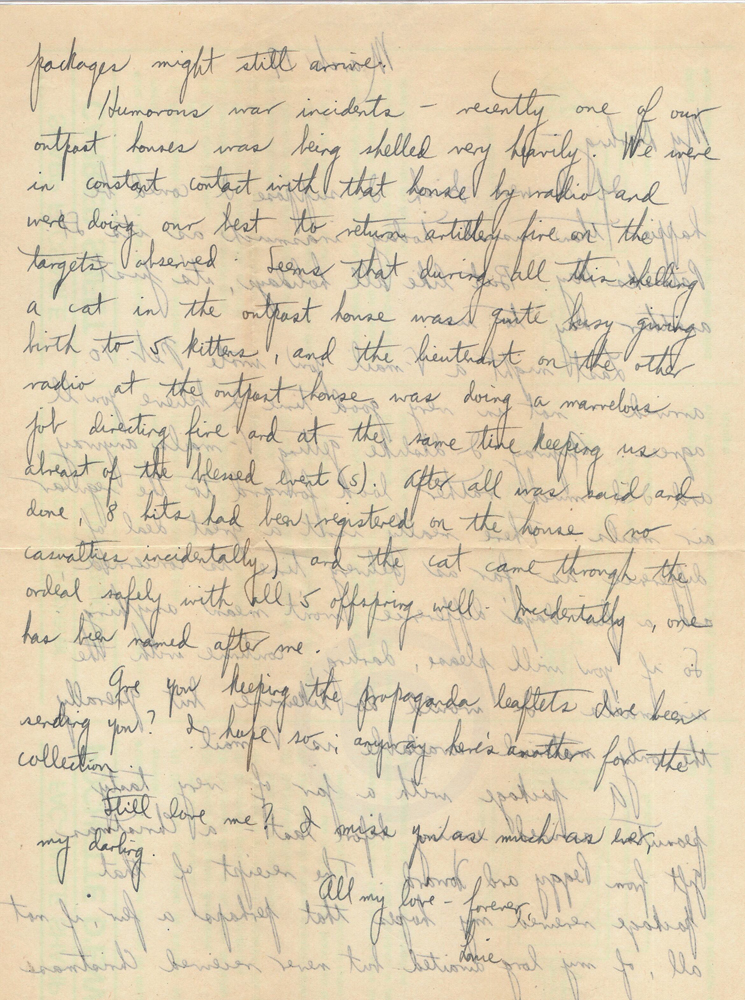 packages might still arrive.
Humorous war incidents - recently one of our
outpost houses was being shelled very heavily. We were
in constant contact with that house by radio and
were doing our best to return artillery fire on the
targets observed. Seems that during all this shelling
a cat in the outpost house was quite busy giving
birth to 5 kittens, and the lieutenant on the other
radio at the outpost house was doing a marvelous
job directing fire and at the same time keeping us
abreast of the blessed event(s). After all was said and
done, 8 hits had been registered on the house (no
casualties incidentally) and the cat came through the
ordeal safely with all 5 offspring well. Incidentally, one
has been named after me.
Are you keeping the propaganda leaflets I've been
sending you? I hope so; anyway here's another for the
collection.
Still love me? I miss you as much as ever,
my darling.
All my love - forever,
Louie